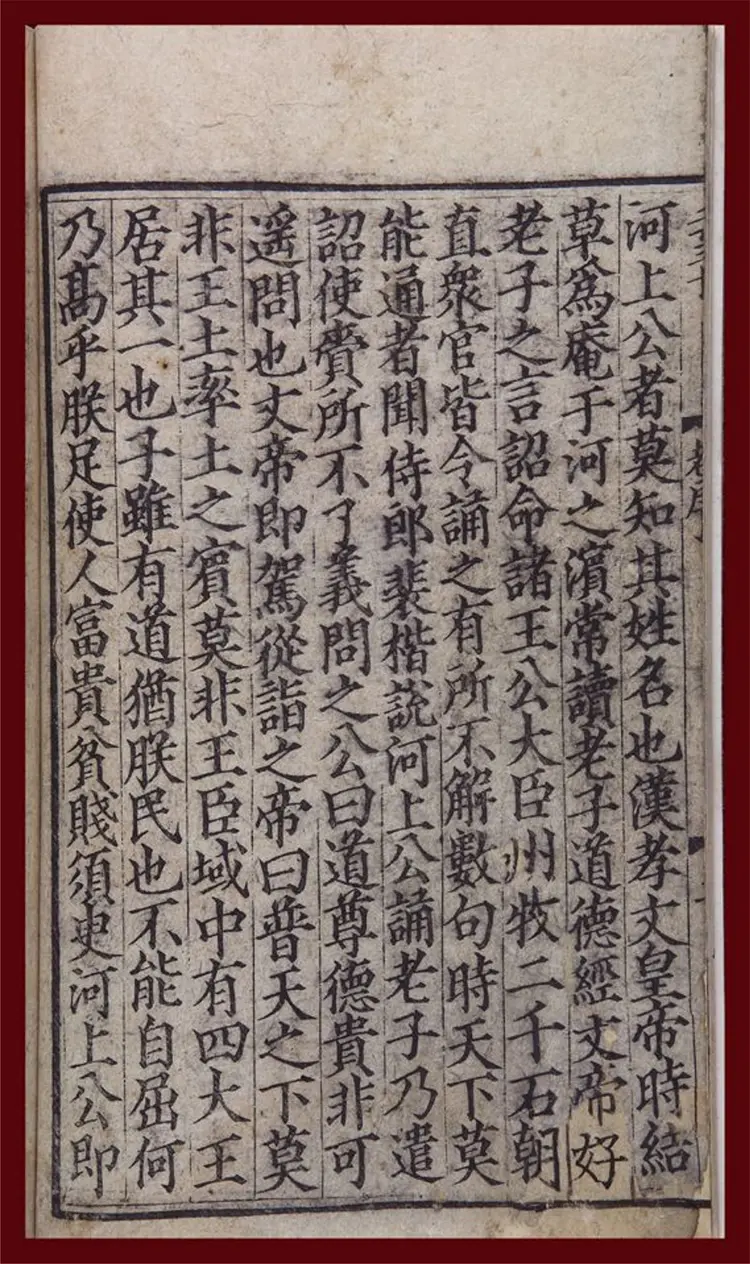 河上公者莫知其姓名也漢孝文皇帝時結
草爲庵于河之濵常讀老子道德經文帝好
老子之言詔命諸王公大臣州牧二千石朝
直衆官皆令誦之有所不解數句時天下莫
能通者聞侍郎裴楷說河上公誦老子乃遣
詔使賫所不了義問之公曰道尊德貴非可
遥問也文帝即駕從詣之帝曰普天之下莫
非王土率土之賓莫非王臣域中有四大王
居其一也子雖有道猶朕民也不能自屈何
乃髙乎朕足使人富貴貧賤須吏河上公即